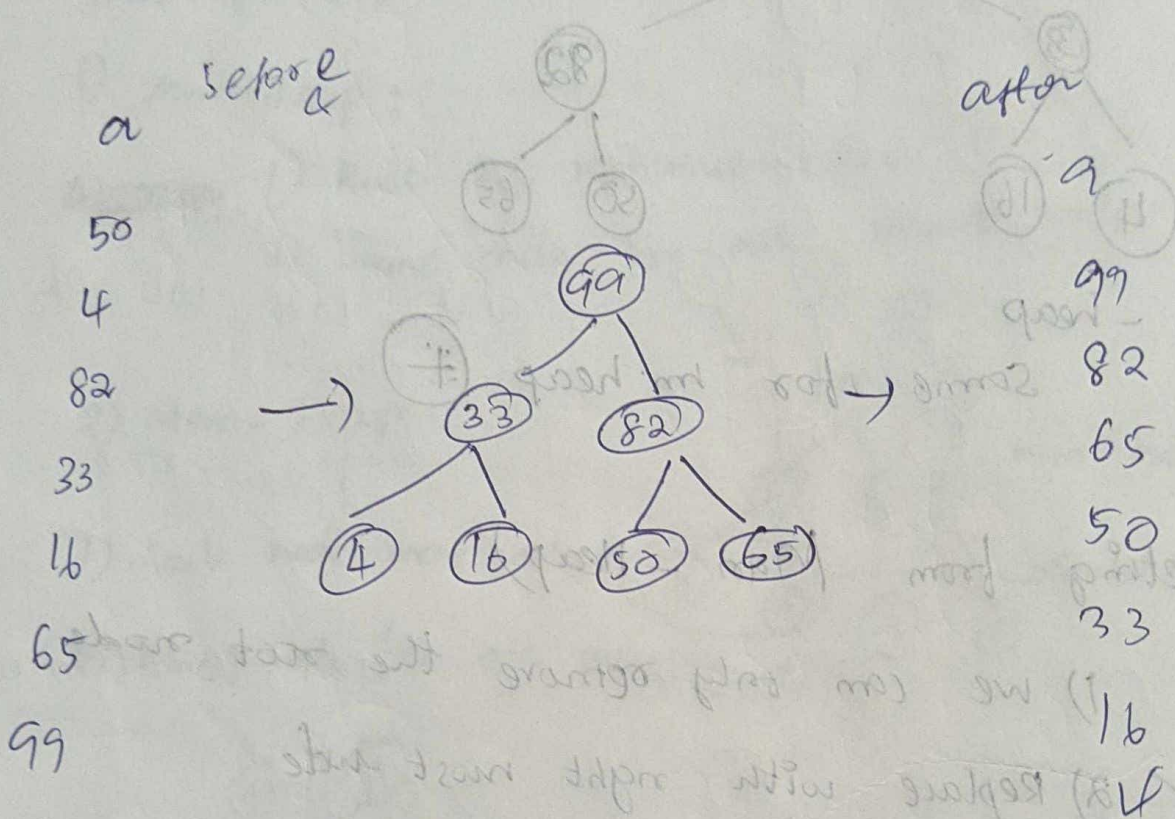 before
a
50
4
82
33
16
65
99
→
99
33 82
4 16 50 65
→
after
a
99
82
65
50
33
16
4